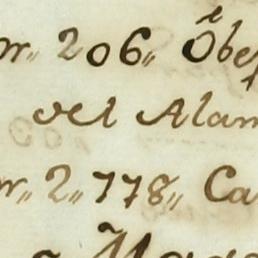 nr„ 206„ Obe
del Alam
nr„ 2„778„ Ca